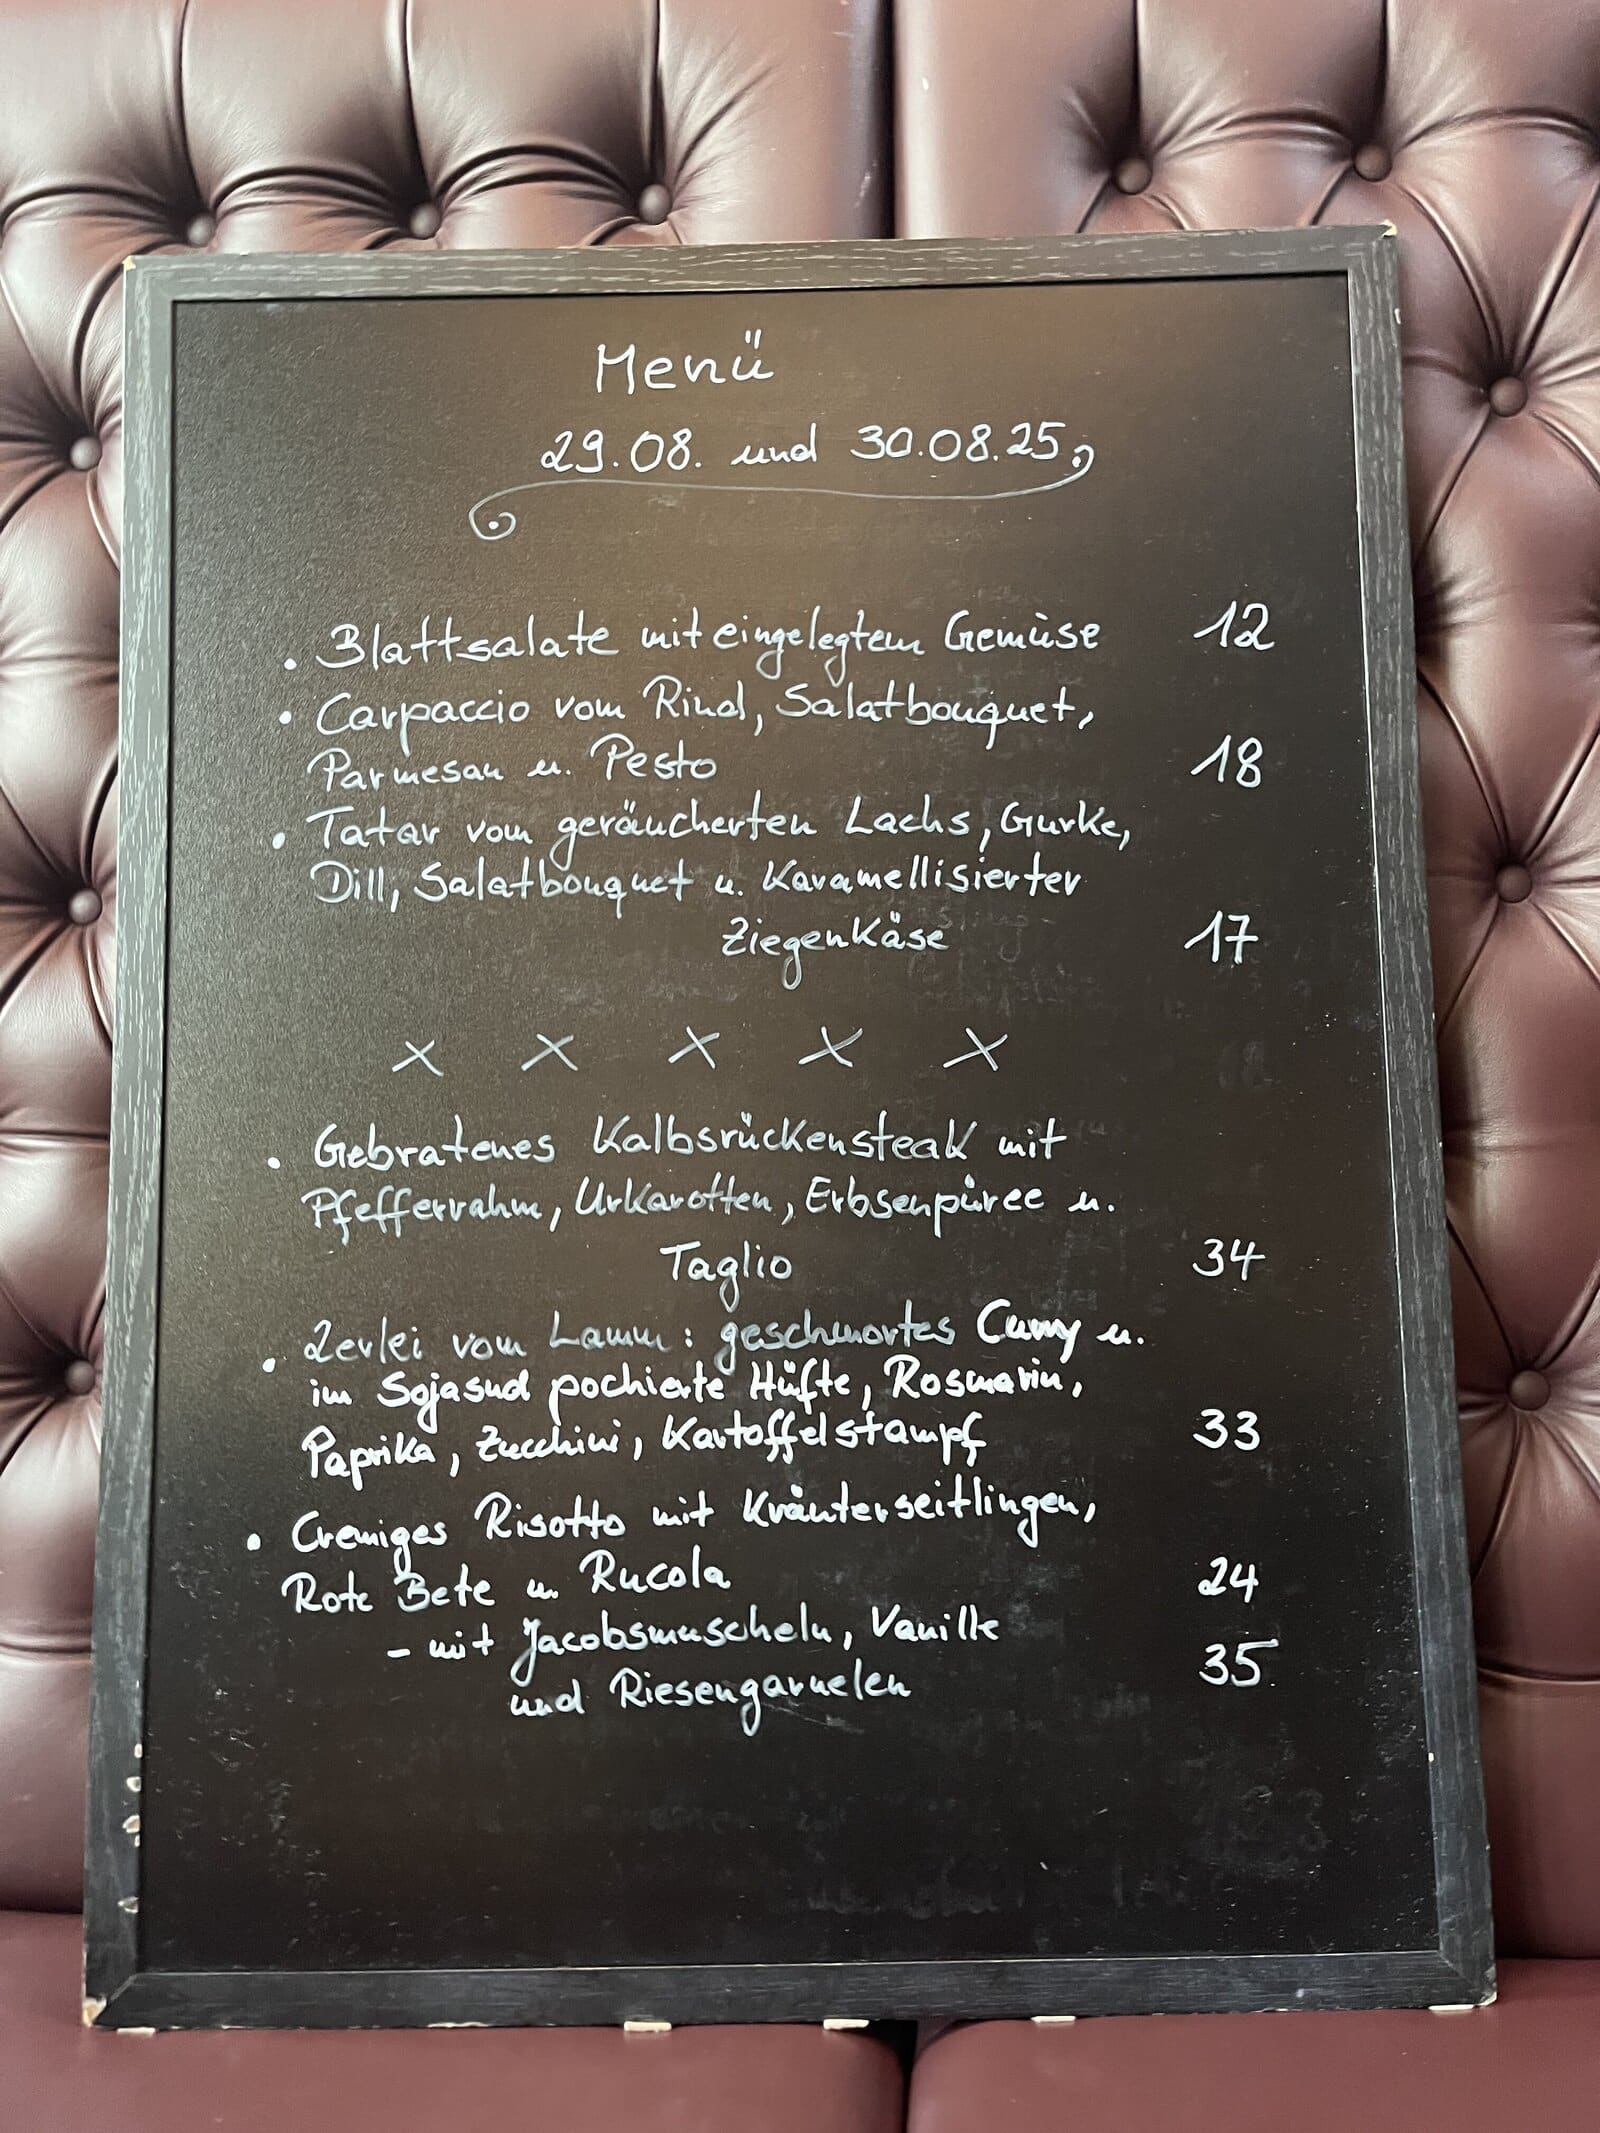 Menü
29.08. und 30.08.25
• Blattsalate mit eingelegtem Gemüse 12
• Carpaccio vom Rind, Salatbouquet,
Parmesan u. Pesto 18
• Tatar vom geräucherten Lachs, Gurke,
Dill, Salatbouquet u. Karamellisierter
Ziegenkäse 17
x x x x x
• Gebratenes Kalbsrückensteak mit
Pfefferrahm, Urkarotten, Erbsenpüree u.
Taglio 34
• 2erlei vom Lamm: geschmortes Curry u.
im Sojasud pochierte Hüfte, Rosmarin,
Paprika, Zucchini, Kartoffelstampf 33
• Cremiges Risotto mit Kräuterseitlingen,
Rote Bete u. Rucola 24
- mit Jacobsmuscheln, Vanille
und Riesengarnelen 35